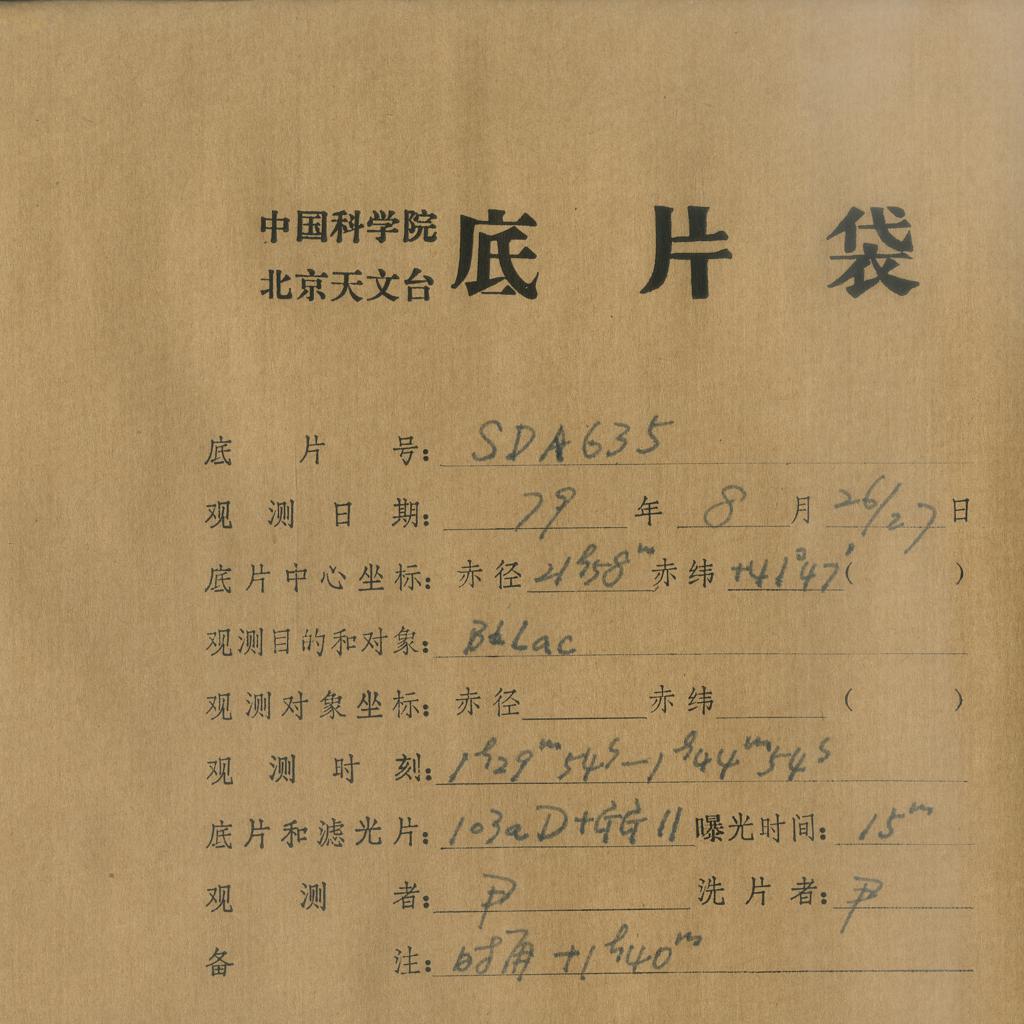 中国科学院
北京天文台
底片袋
底片号: SDA635
观测日期: 79年8月26/27日
底片中心坐标: 赤径 21ʰ58ᵐ 赤纬 +41°47′( )
观测目的和对象: BLLac
观测对象坐标: 赤径 赤纬 ( )
观测时刻: 1ʰ29ᵐ54ˢ—1ʰ44ᵐ54ˢ
底片和滤光片: 103aD+GG11 曝光时间: 15ᵐ
观测者: 尹 洗片者: 尹
备注: 时角 +1ʰ40ᵐ